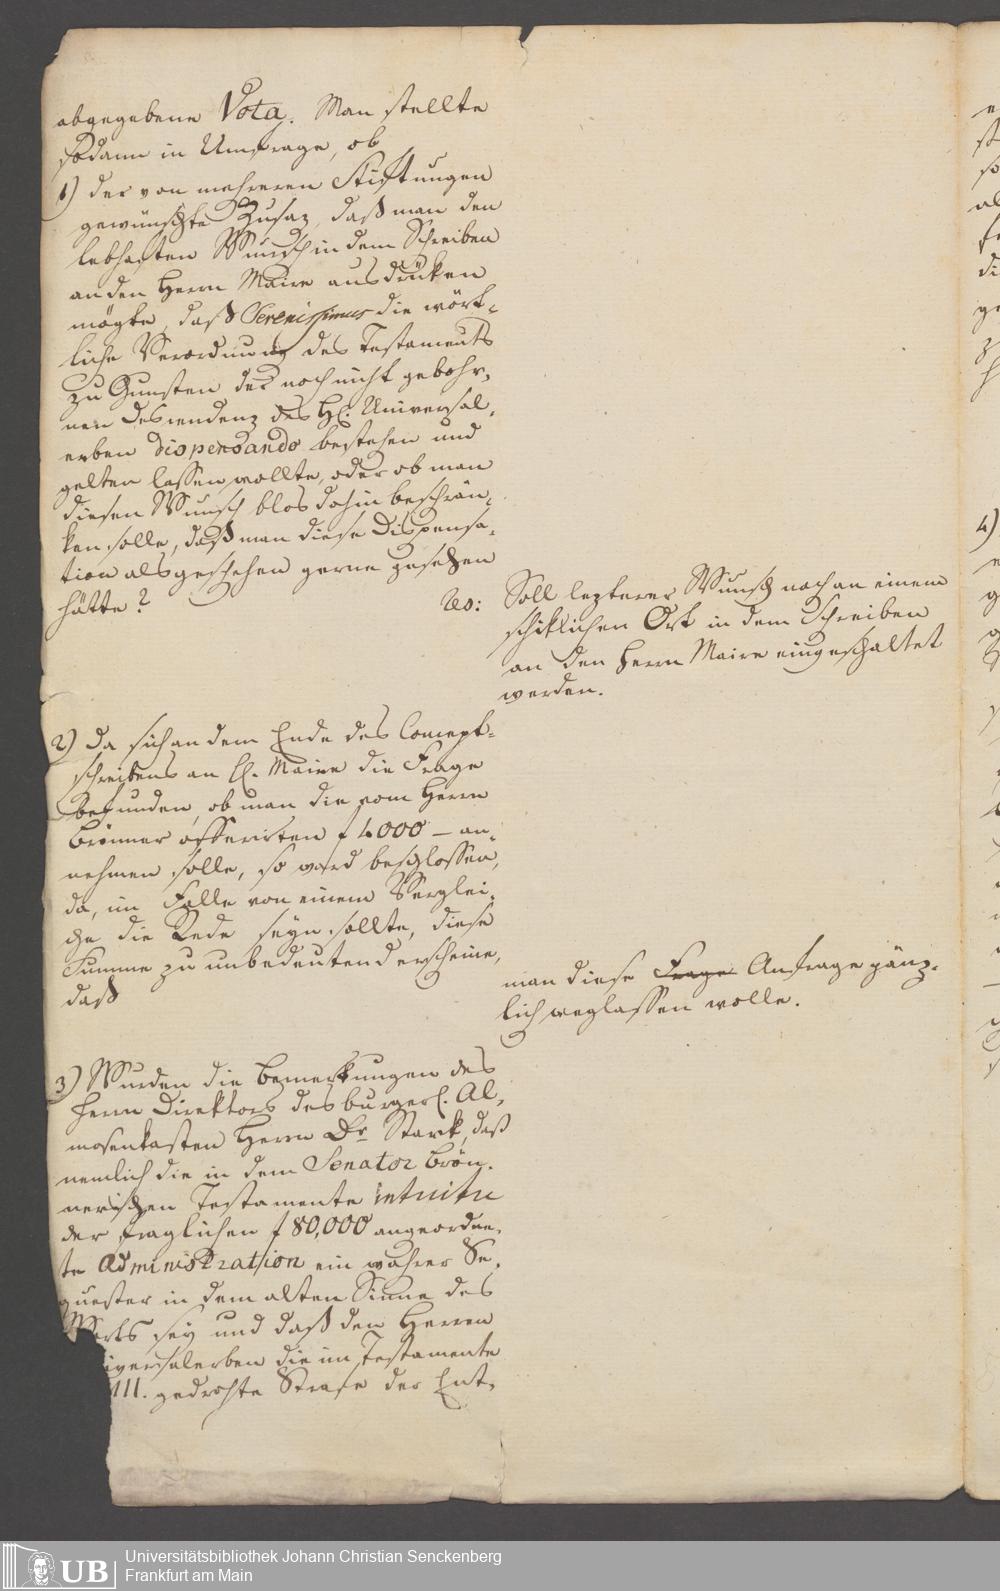 abgegebene Vota. Man stellte
sodann in Umfrage, ob
1) der von mehreren Stiftungen
gewünschte Zusaz, daß man den
lebhaften Wunsch in dem Schreiben
an den Herrn Maire ausdrüken
mögte, daß Serenissimus die wört-
liche Verordnung des Testaments
zu Gunsten der noch nicht gebohr-
nen Descendenz des H. Universal-
erben dispensando bestehen und
gelten lassen wollte, oder ob man
diesen Wunsch blos dahin beschrän-
ken solle, daß man diese Dispensa-
tion als geschehen gerne gesehen
hätte?
Res:
Soll lezterer Wunsch noch an einem
schiklichen Ort in dem Schreiben
an den Herrn Maire eingeschaltet
werden.
2) Da sich an dem Ende des Concept-
schreibens an H. Maire die Frage
befunden, ob man die vom Herrn
Brönner offerirten f 4000 – an-
nehmen solle, so ward beschlossen,
da, im Falle von einem Verglei-
che die Rede seyn sollte, diese
Summe zu unbedeutend erscheine,
daß
man diese Frage Anfrage gänz-
lich weglassen wolle.
3) Wurden die Bemerkungen des
Herrn Direktors des burgerl. Al-
mosenkasten Herrn Dr Stark, daß
nemlich die in dem Senator Brön-
nerischen Testamente intuitu
der fraglichen f 80,000 angeordne-
te Administration ein wahrer Se-
quester in dem alten Sinne des
Worts sey und daß den Herren
iversalerben die im Testamente
III. gedrohte Strafe der Ent-
Universitätsbibliothek Johann Christian Senckenberg
Frankfurt am Main
UB